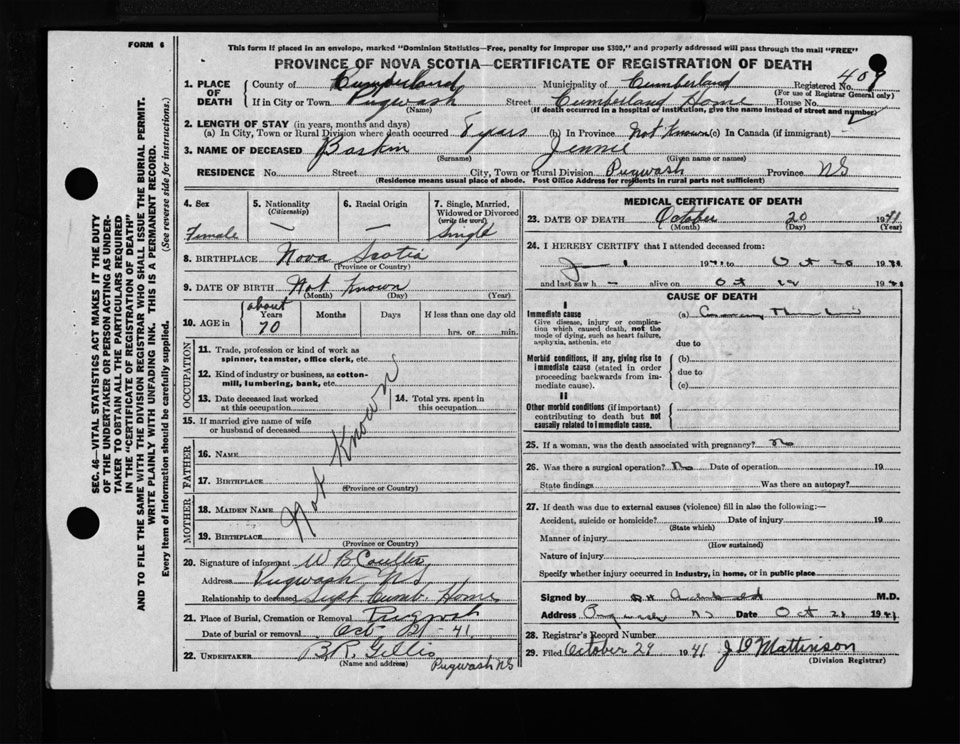 FORM 6
This form if placed in an envelope, marked "Dominion Statistics—Free, penalty for improper use $300," and properly addressed will pass through the mail "FREE"
PROVINCE OF NOVA SCOTIA—CERTIFICATE OF REGISTRATION OF DEATH
SEC. 46—VITAL STATISTICS ACT MAKES IT THE DUTY
OF THE UNDERTAKER OR PERSON ACTING AS UNDER-
TAKER TO OBTAIN ALL THE PARTICULARS REQUIRED
IN THE "CERTIFICATE OF REGISTRATION OF DEATH"
AND TO FILE THE SAME WITH THE DIVISION REGISTRAR WHO SHALL ISSUE THE BURIAL PERMIT.
WRITE PLAINLY WITH UNFADING INK. THIS IS A PERMANENT RECORD.
Every item of information should be carefully supplied. (See reverse side for instructions.)
1. PLACE OF DEATH
County of Cumberland Municipality of Cumberland Registered No. 409
(For use of Registrar General only)
If in City or Town Pugwash Street Cumberland Home House No.
(Name) (If death occurred in a hospital or institution, give the name instead of street and number)
2. LENGTH OF STAY (in years, months and days)
(a) In City, Town or Rural Division where death occurred 8 years (b) In Province Not Known (c) In Canada (if immigrant)
3. NAME OF DECEASED Baskin Jennie
(Surname) (Given name or names)
RESIDENCE No. Street City, Town or Rural Division Pugwash Province NS
(Residence means usual place of abode. Post Office Address for residents in rural parts not sufficient)
4. Sex Female
5. Nationality (Citizenship) —
6. Racial Origin —
7. Single, Married, Widowed or Divorced (write the word) Single
8. BIRTHPLACE Nova Scotia
(Province or Country)
9. DATE OF BIRTH Not Known
(Month) (Day) (Year)
10. AGE in about 70 Years Months Days If less than one day old
hrs. or min.
OCCUPATION
11. Trade, profession or kind of work as spinner, teamster, office clerk, etc.
12. Kind of industry or business, as cotton-mill, lumbering, bank, etc.
13. Date deceased last worked at this occupation
14. Total yrs. spent in this occupation
15. If married give name of wife or husband of deceased
FATHER
16. NAME
17. BIRTHPLACE
(Province or Country)
MOTHER
18. MAIDEN NAME
19. BIRTHPLACE
(Province or Country)
Not Known
20. Signature of informant W B Coulter
Address Pugwash NS
Relationship to deceased Supt Cumb. Home
21. Place of Burial, Cremation or Removal Pugwash
Date of burial or removal Oct 21 - 41
22. UNDERTAKER B R. Gillis
(Name and address) Pugwash NS
MEDICAL CERTIFICATE OF DEATH
23. DATE OF DEATH October 20 1941
(Month) (Day) (Year)
24. I HEREBY CERTIFY that I attended deceased from:
19 to Oct 20 19
and last saw h alive on Oct 19
CAUSE OF DEATH
I
Immediate cause
Give disease, injury or complication which caused death, not the mode of dying, such as heart failure, asphyxia, asthenia, etc
(a) Coronary
due to
Morbid conditions, if any, giving rise to immediate cause (stated in order proceeding backwards from immediate cause).
(b)
due to
(c)
II
Other morbid conditions (if important) contributing to death but not causally related to immediate cause.
25. If a woman, was the death associated with pregnancy? No
26. Was there a surgical operation? No Date of operation 19
State findings Was there an autopsy?
27. If death was due to external causes (violence) fill in also the following:—
Accident, suicide or homicide? Date of injury 19
(State which)
Manner of injury
(How sustained)
Nature of injury
Specify whether injury occurred in industry, in home, or in public place
Signed by M.D.
Address Pugwash NS Date Oct 21 1941
28. Registrar's Record Number
29. Filed October 29 1941 J D Mattinson
(Division Registrar)